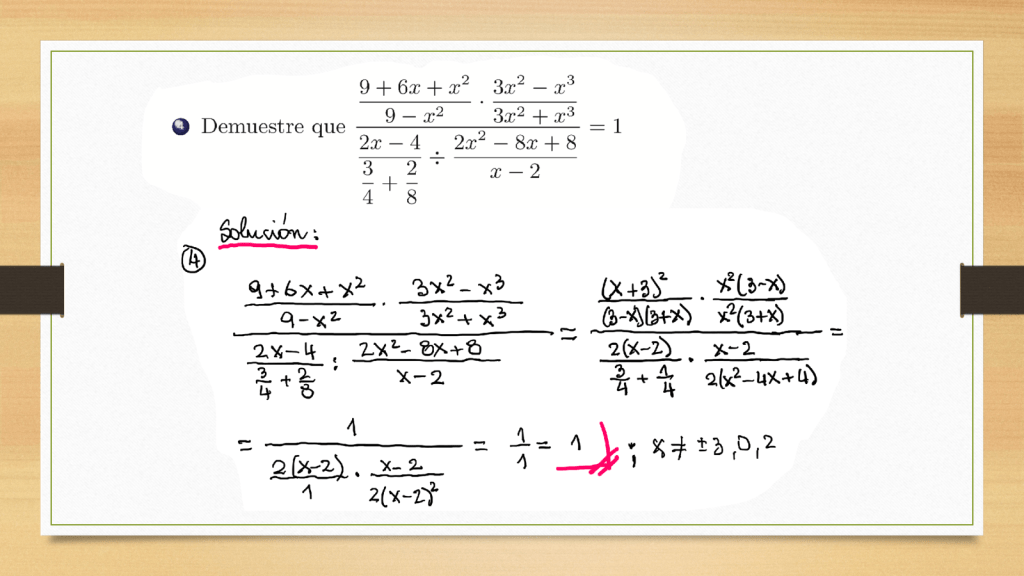 4 Demuestre que \frac{\frac{9+6x+x^2}{9-x^2} \cdot \frac{3x^2-x^3}{3x^2+x^3}}{\frac{2x-4}{\frac{3}{4}+\frac{2}{8}} \div \frac{2x^2-8x+8}{x-2}} = 1
Solución:
4
\frac{\frac{9+6x+x^2}{9-x^2} \cdot \frac{3x^2-x^3}{3x^2+x^3}}{\frac{2x-4}{\frac{3}{4}+\frac{2}{8}} : \frac{2x^2-8x+8}{x-2}} = \frac{\frac{(x+3)^2}{(3-x)(3+x)} \cdot \frac{x^2(3-x)}{x^2(3+x)}}{\frac{2(x-2)}{\frac{3}{4}+\frac{1}{4}} \cdot \frac{x-2}{2(x^2-4x+4)}} =
= \frac{1}{\frac{2(x-2)}{1} \cdot \frac{x-2}{2(x-2)^2}} = \frac{1}{1} = 1 ; x ≠ ±3,0,2